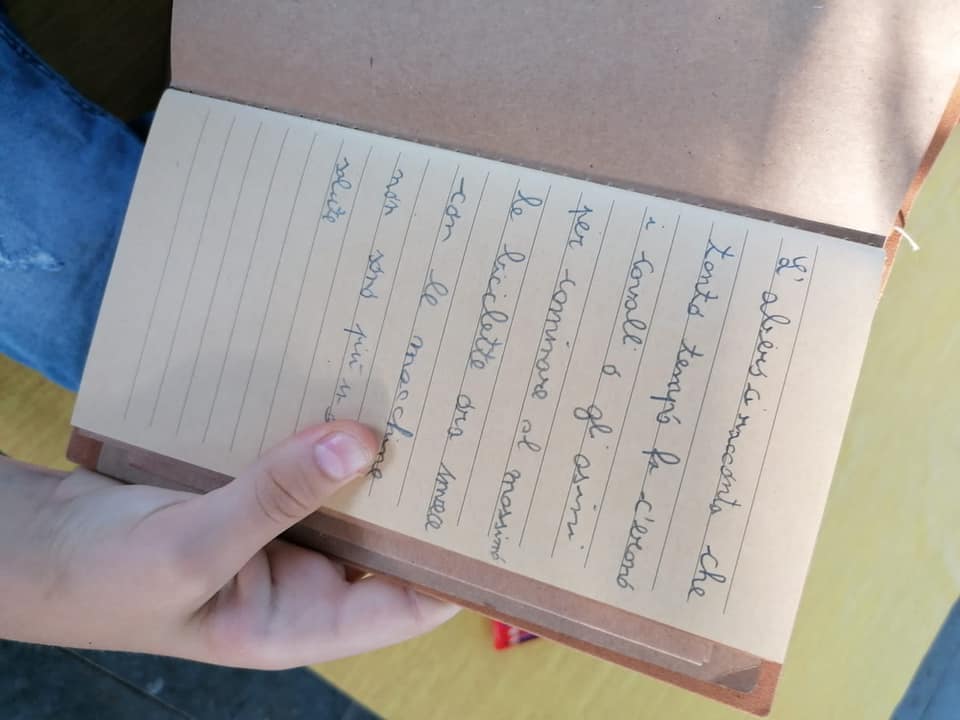 L' abers ci racconta che
tonto tempo fa c'erano
i cavali o gli asini
per caminare al massimo
le biciclette ora invece
con le macchine
non sono più in
salute